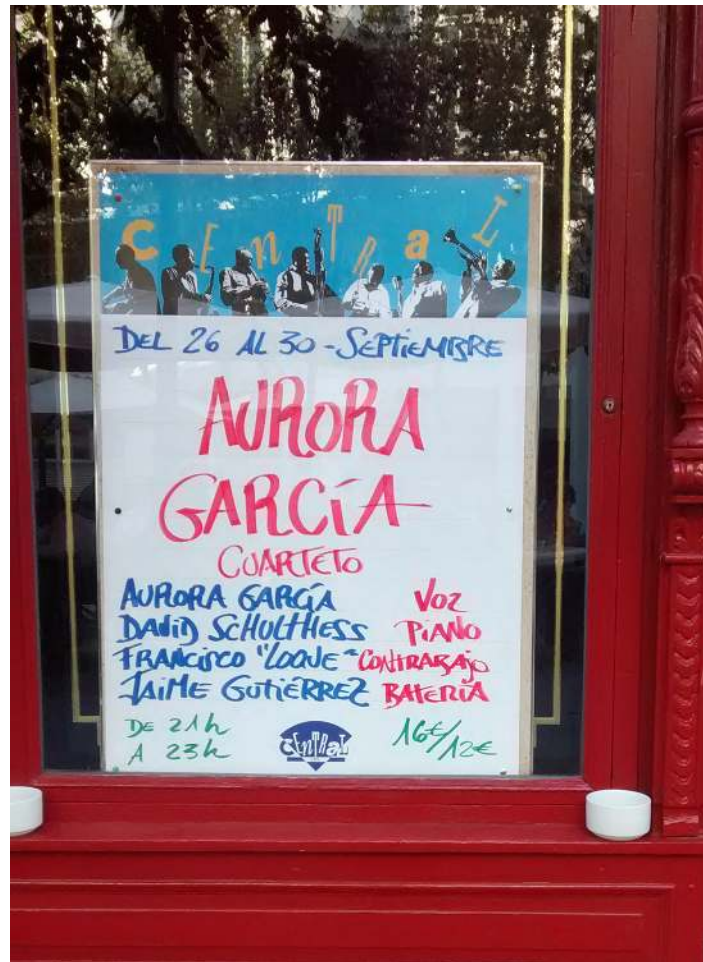 CENTRAL
DEL 26 AL 30 - SEPTIEMBRE
AURORA
GARCÍA
CUARTETO
AURORA GARCÍA VOZ
DAVID SCHULTHESS PIANO
FRANCISCO "LOQUE" CONTRABAJO
JAIME GUTIÉRREZ BATERÍA
DE 21h
A 23h
CENTRAL
16€/12€